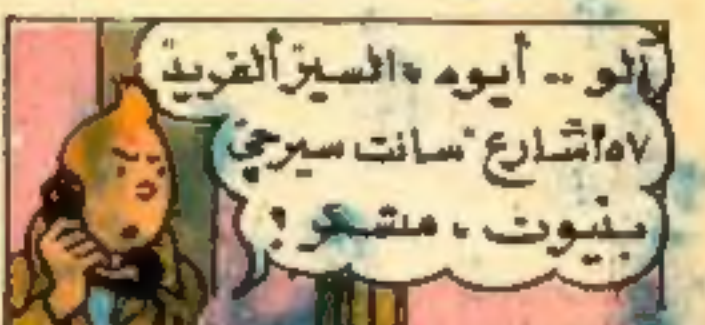 آلو .. أيوه ، السير ألفريد
١٥٧ شارع سانت سيرجي
بنيوت ، متشكر !